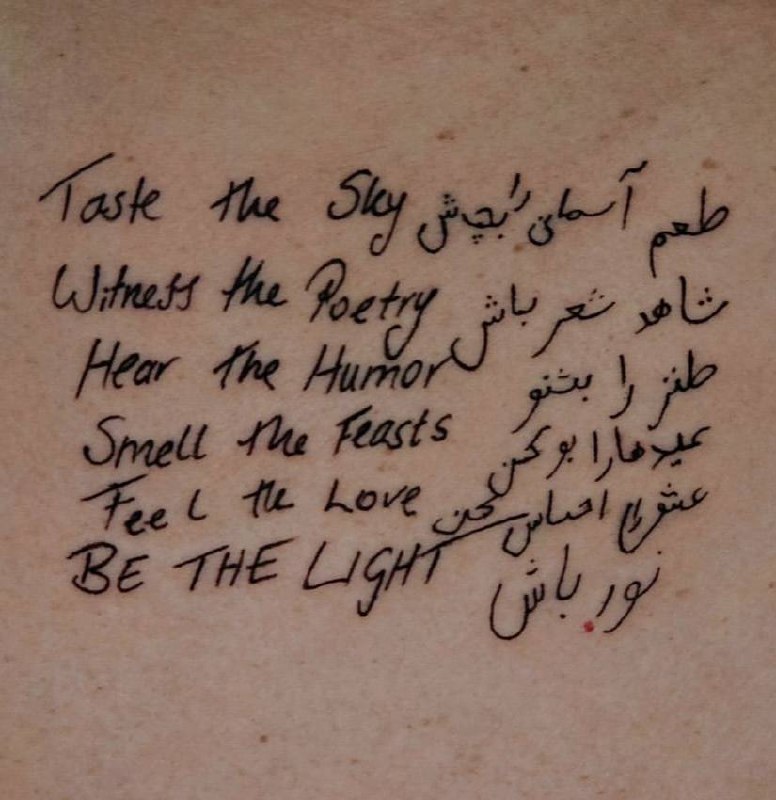 Taste the Sky طعم آسمان را بچش
Witness the Poetry شاهد شعر باش
Hear the Humor طنز را بشنو
Smell the Feasts عید هارا بو کن
Feel the Love عشق را احساس کن
BE THE LIGHT نور باش